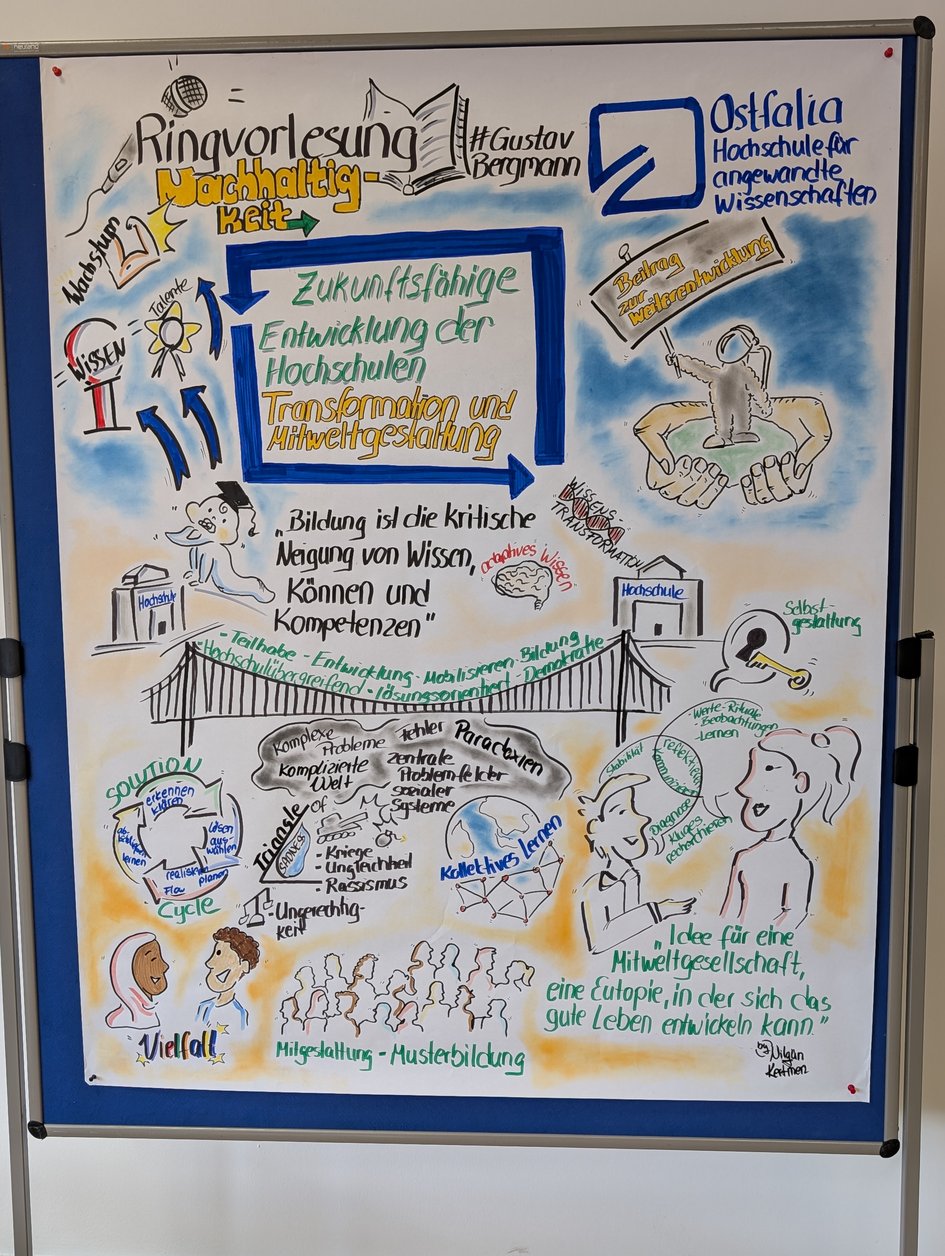 Neuland
Ringvorlesung
Nachhaltig-
keit
#Gustav
Bergmann
Ostfalia
Hochschule für
angewandte
Wissenschaften
Wachstum
Talente
WISSEN
Zukunftsfähige
Entwicklung der
Hochschulen
Transformation und
Mitweltgestaltung
Beitrag
zur
Weiterentwicklung
„Bildung ist die kritische
Neigung von Wissen,
Können und
Kompetenzen"
adaptives Wissen
WISSENS-
TRANSFORMATION
Hochschule
Hochschule
Selbst-
gestaltung
- Teilhabe - Entwicklung - Mobilisieren - Bildung
- Hochschulübergreifend - lösungsorientiert - Demokratie
Komplexe
Probleme
Komplizierte
Welt
fehler
Paradoxien
zentrale
Problemfelder
sozialer
Systeme
SOLUTION
erkennen
klären
lösen
aus-
wählen
planen
realisieren
Flow
lernen
Cycle
Triangle
of
SADNESS
- Kriege
- Ungleichheit
- Rassismus
- Ungerechtig-
keit
Kollektives Lernen
- Werte - Rituale
- Beobachtungen
- Lernen
Stabilität
Diagnose
Kluges
recherchieren
Vielfalt
Mitgestaltung - Musterbildung
„Idee für eine
Mitweltgesellschaft,
eine Eutopie, in der sich das
gute Leben entwickeln kann"
by Nilgün